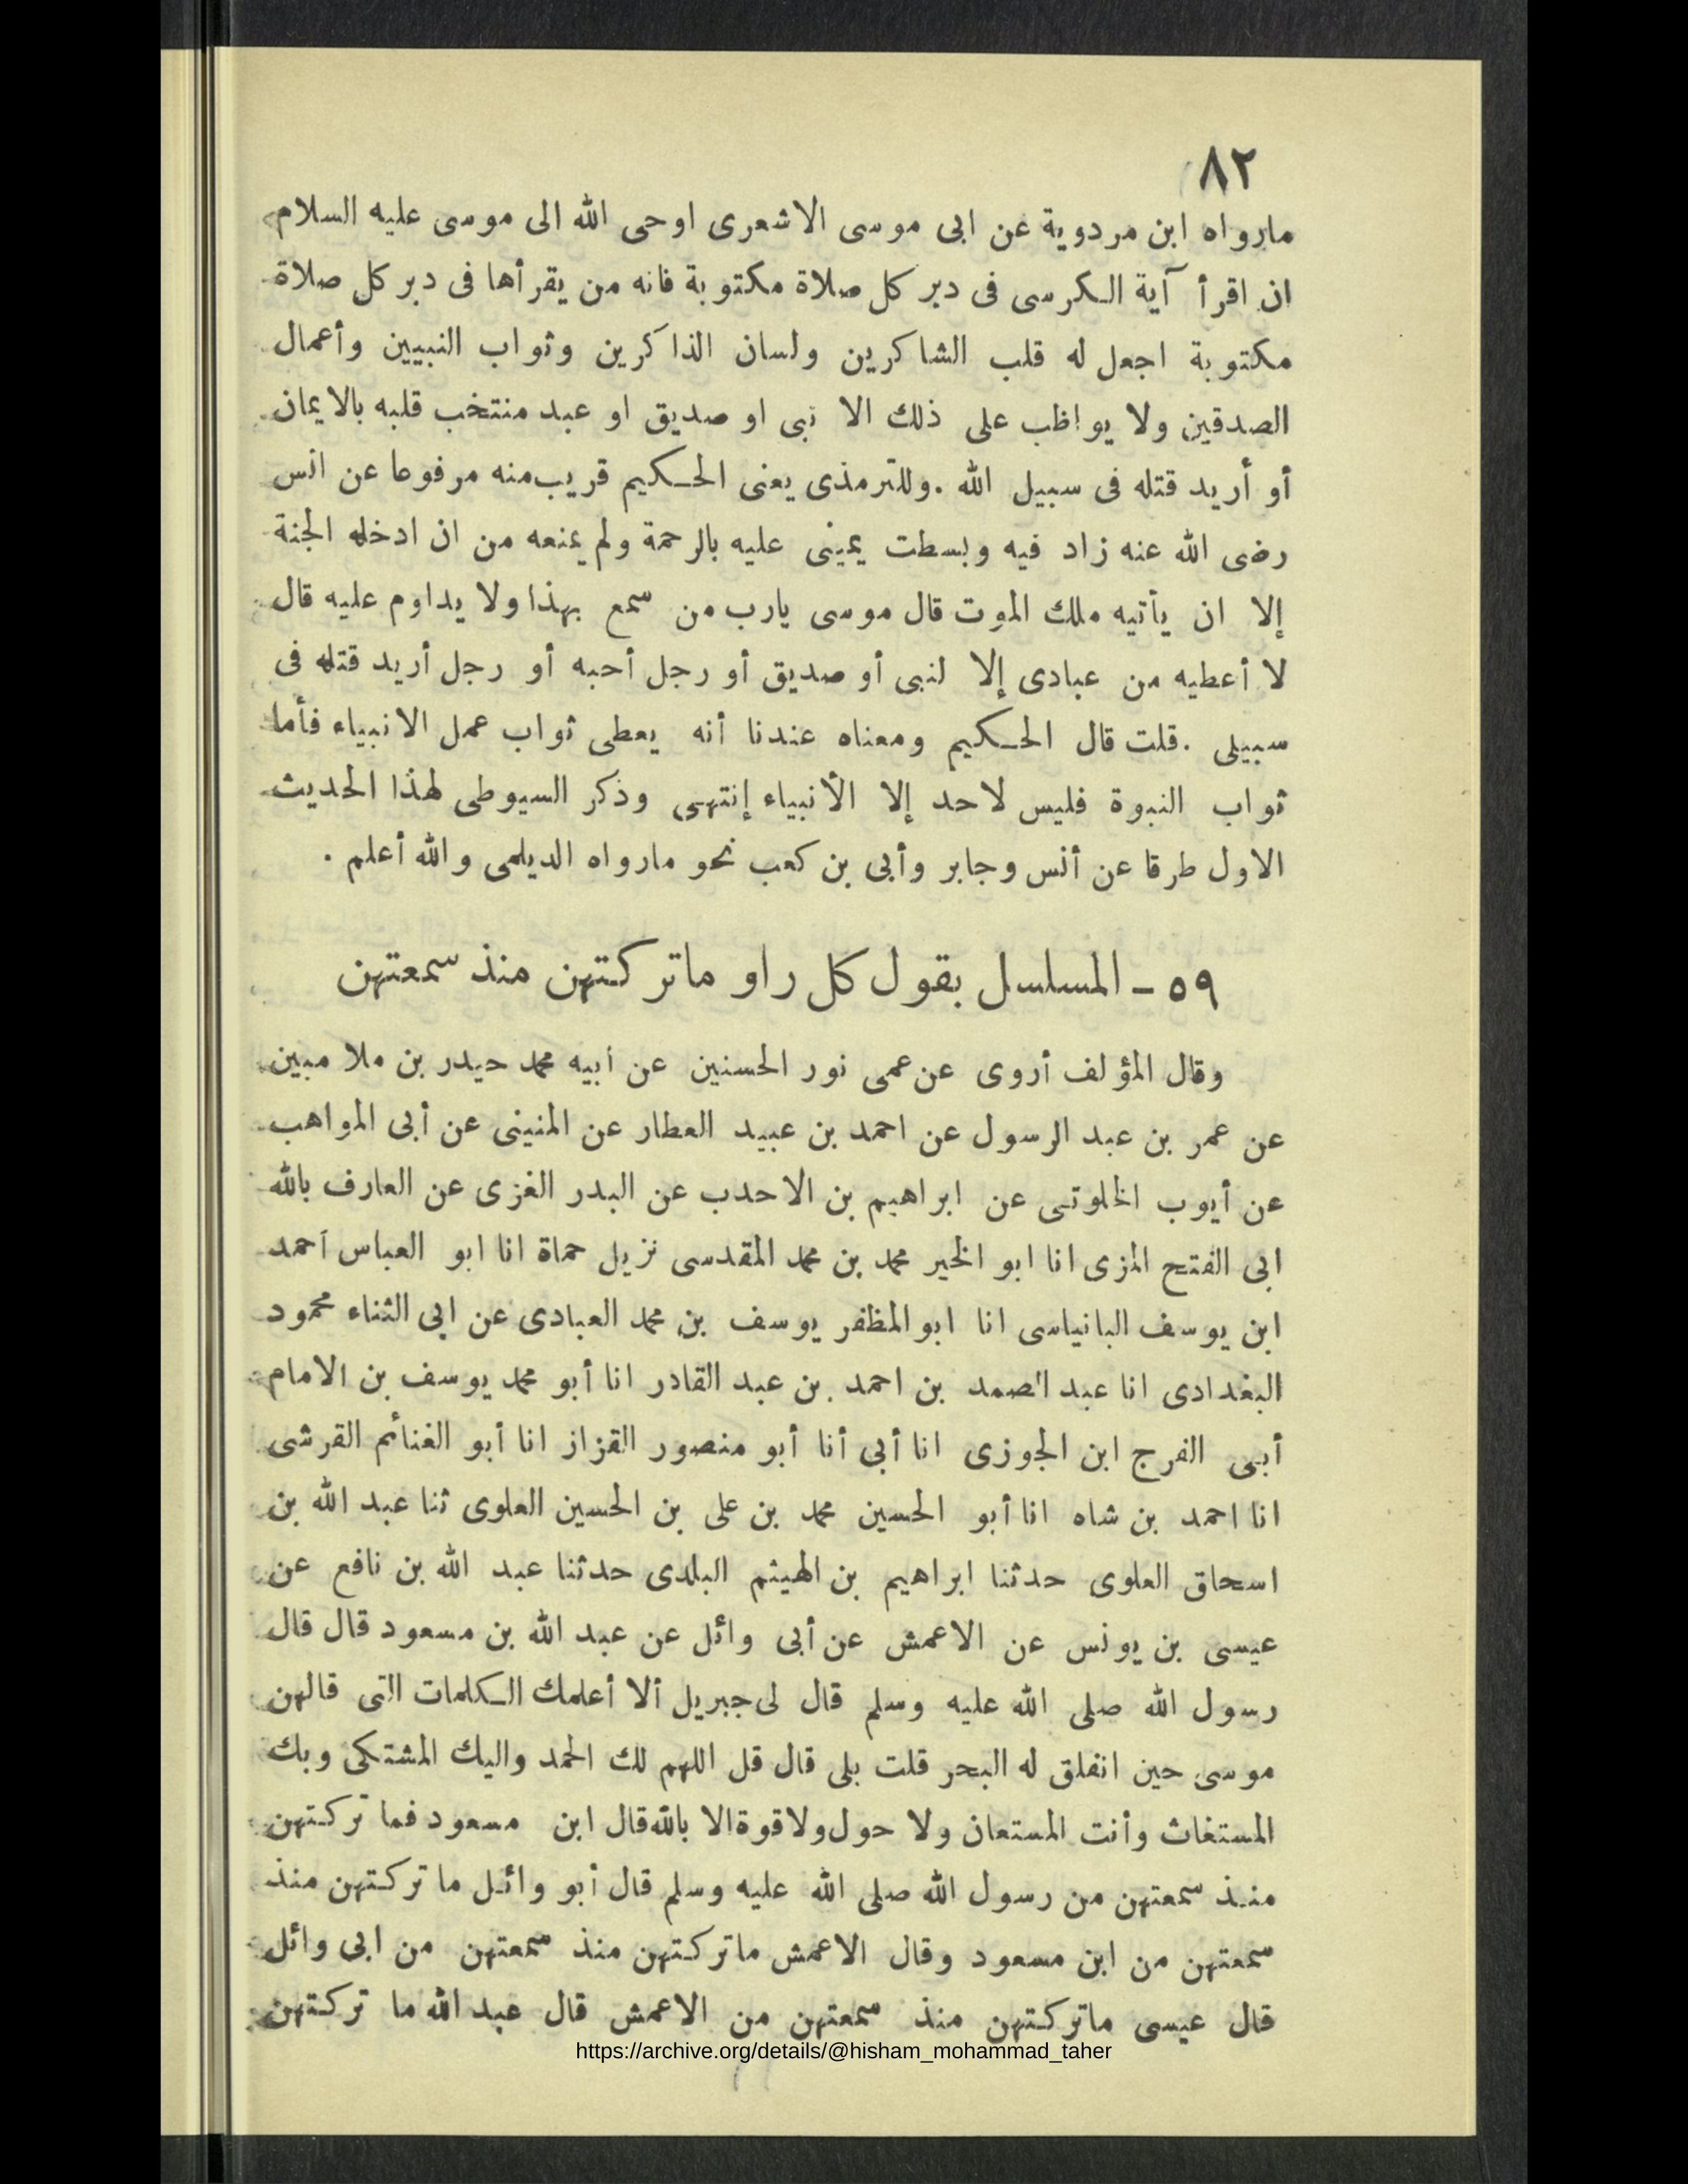 ٨٢
مارواه ابن مردوية عن ابى موسى الاشعرى اوحى الله الى موسى عليه السلام
ان اقرأ آية الكرسى فى دبر كل صلاة مكتوبة فانه من يقرأها فى دبر كل صلاة
مكتوبة اجعل له قلب الشاكرين ولسان الذاكرين وثواب النبيين وأعمال
الصدقين ولا يواظب على ذلك الا نبى او صديق او عبد منتخب قلبه بالايمان
أو أريد قتله فى سبيل الله .وللترمذى يعنى الحكيم قريب منه مرفوعا عن انس
رضى الله عنه زاد فيه وبسطت يمينى عليه بالرحمة ولم يمنعه من ان ادخله الجنة
إلا ان يأتيه ملك الموت قال موسى يارب من سمع بهذا ولا يداوم عليه قال
لا أعطيه من عبادى إلا لنبى أو صديق أو رجل أحبه أو رجل أريد قتله فى
سبيلى .قلت قال الحكيم ومعناه عندنا أنه يعطى ثواب عمل الانبياء فأما
ثواب النبوة فليس لاحد إلا الأنبياء إنتهى وذكر السيوطى لهذا الحديث
الاول طرقا عن أنس وجابر وأبى بن كعب نحو مارواه الديلمى والله أعلم .
٥٩ - المسلسل بقول كل راو ماتركتهن منذ سمعتهن
وقال المؤلف أروى عن عمى نور الحسنين عن أبيه محمد حيدر بن ملا مبين
عن عمر بن عبد الرسول عن احمد بن عبيد العطار عن المنينى عن أبى المواهب
عن أيوب الخلوتى عن ابراهيم بن الاحدب عن البدر الغزى عن العارف بالله
ابى الفتح المزى انا ابو الخير محمد بن محمد المقدسى نزيل حماة انا ابو العباس احمد
ابن يوسف البانياسى انا ابو المظفر يوسف بن محمد العبادى عن ابى الثناء محمود
البغدادى انا عبد الصمد بن احمد بن عبد القادر انا أبو محمد يوسف بن الامام
أبى الفرج ابن الجوزى انا أبى أنا أبو منصور القزاز انا أبو الغنائم القرشى
انا احمد بن شاه انا أبو الحسين محمد بن على بن الحسين العلوى ثنا عبد الله بن
اسحاق العلوى حدثنا ابراهيم بن الهيثم البلدى حدثنا عبد الله بن نافع عن
عيسى بن يونس عن الاعمش عن أبى وائل عن عبد الله بن مسعود قال قال
رسول الله صلى الله عليه وسلم قال لى جبريل ألا أعلمك الكلمات التى قالهن
موسى حين انفلق له البحر قلت بلى قال قل اللهم لك الحمد واليك المشتكى وبك
المستغاث وأنت المستعان ولا حول ولا قوة الا بالله قال ابن مسعود فما تركتهن
منذ سمعتهن من رسول الله صلى الله عليه وسلم قال أبو وائل ما تركتهن منذ
سمعتهن من ابن مسعود وقال الاعمش ماتركتهن منذ سمعتهن من ابى وائل
قال عيسى ماتركتهن منذ سمعتهن من الاعمش قال عبد الله ما تركتهن
https://archive.org/details/@hisham_mohammad_taher